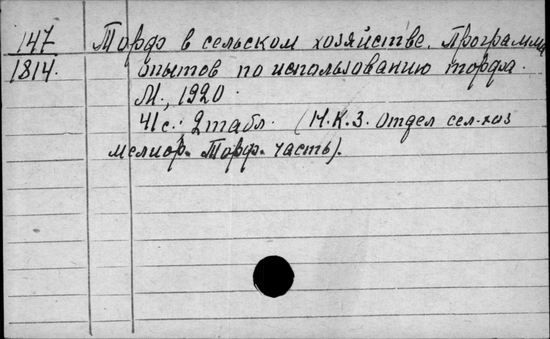 147 Торф в сельском хозяйстве. Программа
1814. опытов по использованию торфа.
М., 1920.
41 с.; 2 табл. (Н.К.З. Отдел сел-хоз
мелиор. Торф. часть).